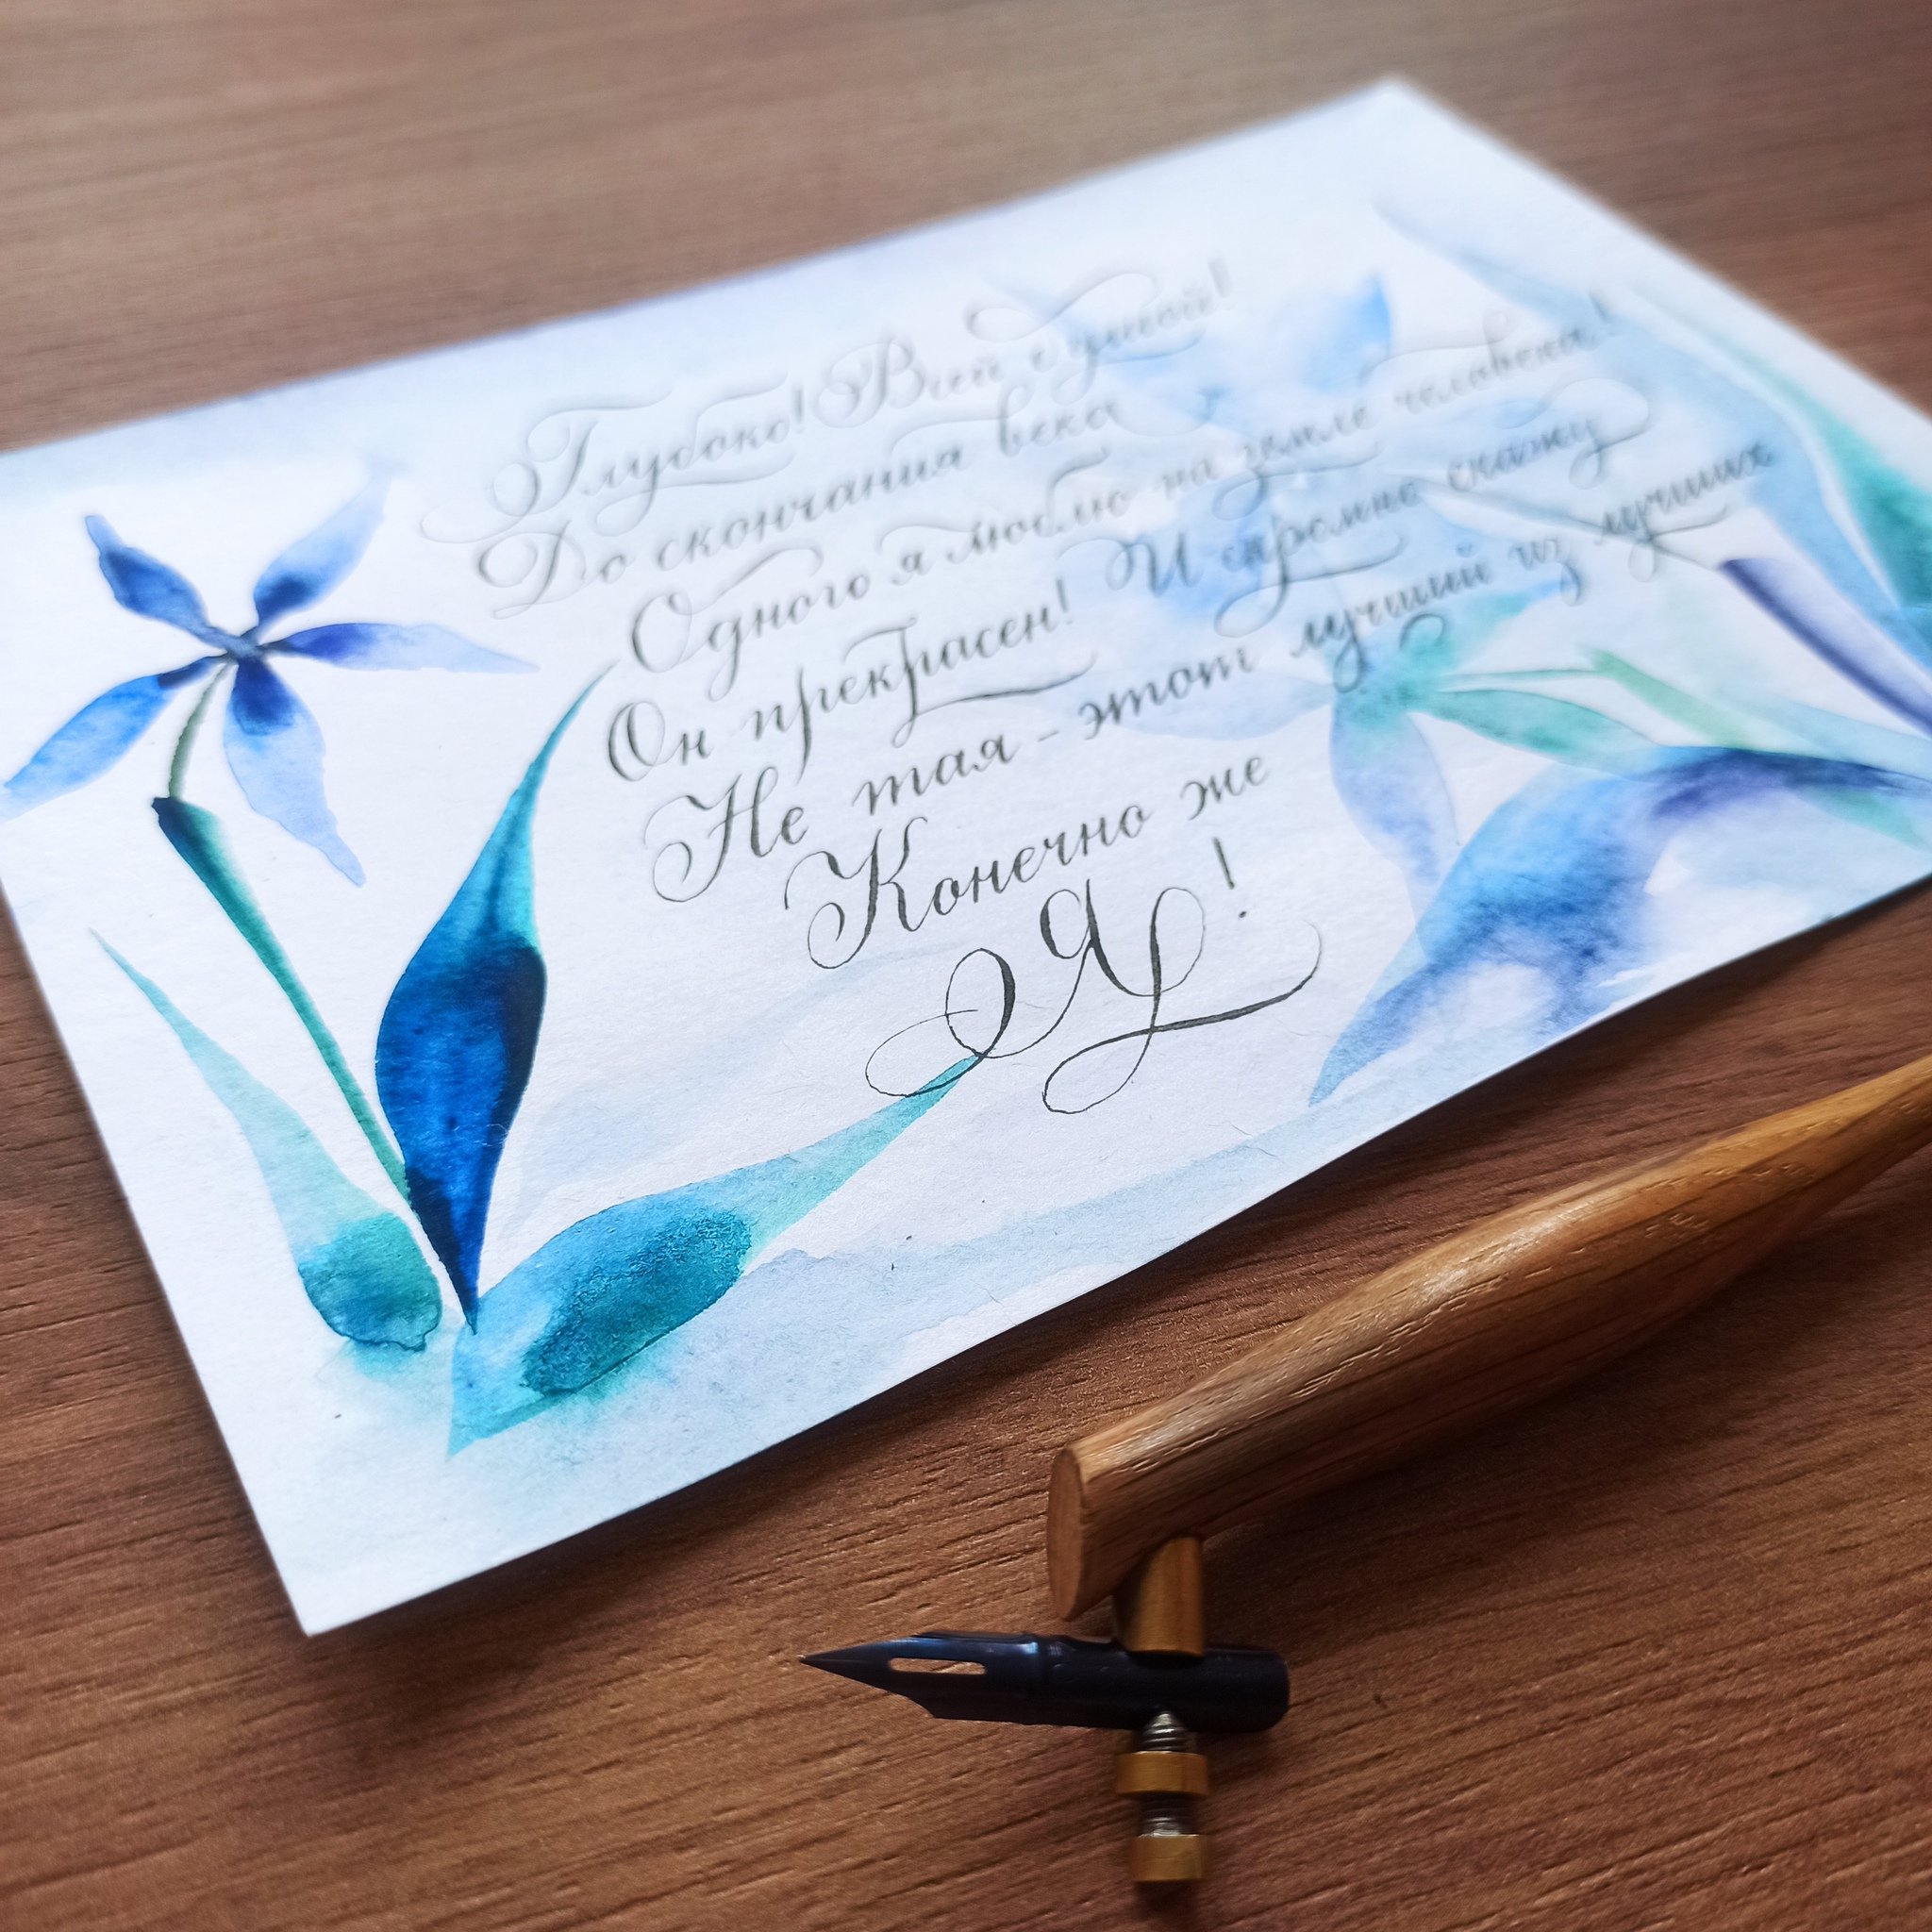 Глубоко! Всей душой!
До скончания века
Одного я люблю на земле человека!
Он прекрасен! И скромно скажу
Не тая - этот лучший из лучших
Конечно же
Я!